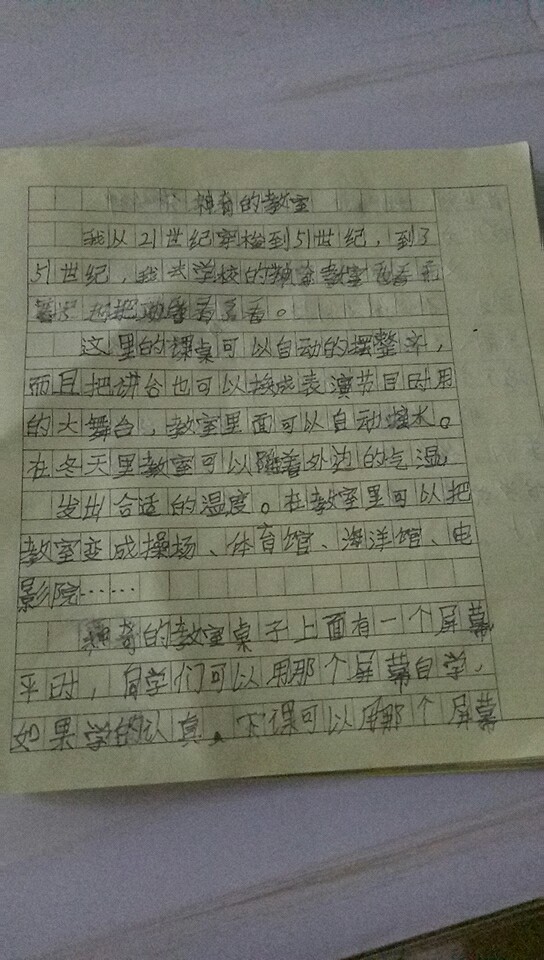 神奇的教室
我从21世纪穿梭到51世纪，到了
51世纪，我去学校的神奇教室看看
看。
这里的课桌可以自动的摆整齐，
而且把讲台也可以换成表演节目时用
的大舞台，教室里面可以自动接水。
在冬天里教室可以随着外边的气温，
发出合适的温度。在教室里可以把
教室变成操场、体育馆、海洋馆、电
影院……
神奇的教室桌子上面有一个屏幕
平时，同学们可以用那个屏幕自学，
如果学的认真，下课可以用那个屏幕